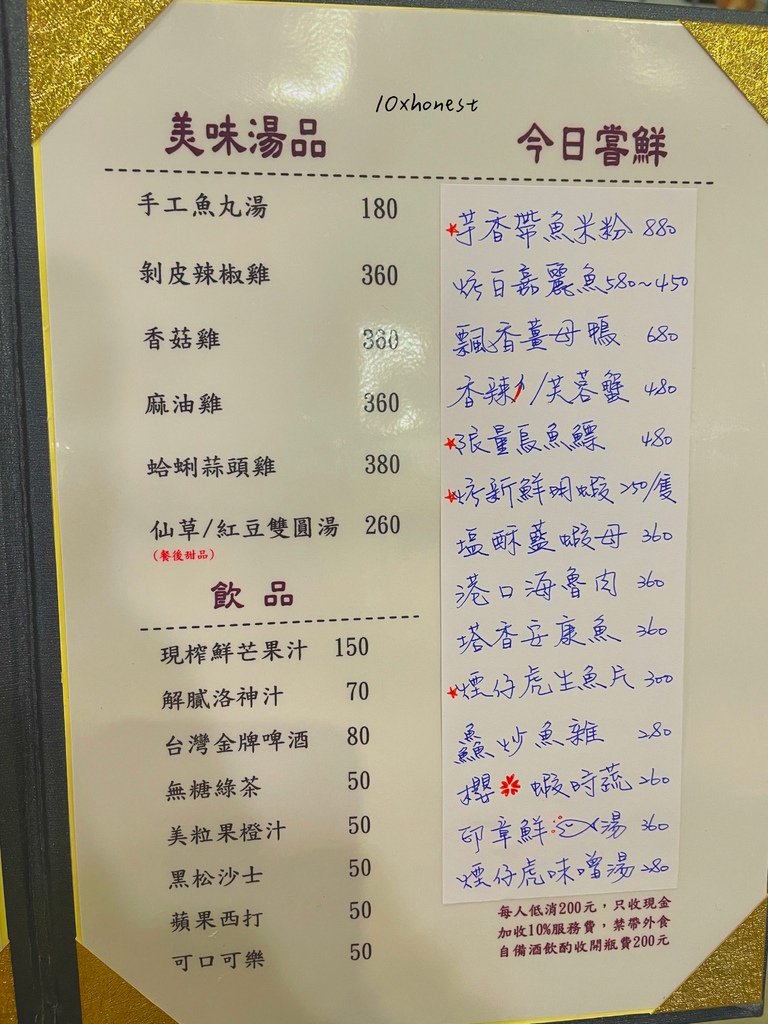 10xhonest
美味湯品
手工魚丸湯 180
剝皮辣椒雞 360
香菇雞 360
麻油雞 360
蛤蜊蒜頭雞 380
仙草/紅豆雙圓湯 260
(餐後甜品)
飲品
現榨鮮芒果汁 150
解膩洛神汁 70
台灣金牌啤酒 80
無糖綠茶 50
美粒果橙汁 50
黑松沙士 50
蘋果西打 50
可口可樂 50
今日嘗鮮
芋香帶魚米粉 880
烤百嘉麗魚 580~450
飄香薑母鴨 680
香辣/芙蓉蟹 480
限量烏魚鰾 480
烤新鮮明蝦 250/隻
塩酥藍蝦母 360
港口海魯肉 360
塔香安康魚 360
煙仔虎生魚片 300
鱻炒魚雜 280
櫻 蝦時蔬 260
印章鮮 湯 360
煙仔虎味噌湯 280
每人低消200元，只收現金
加收10%服務費，禁帶外食
自備酒飲酌收開瓶費200元